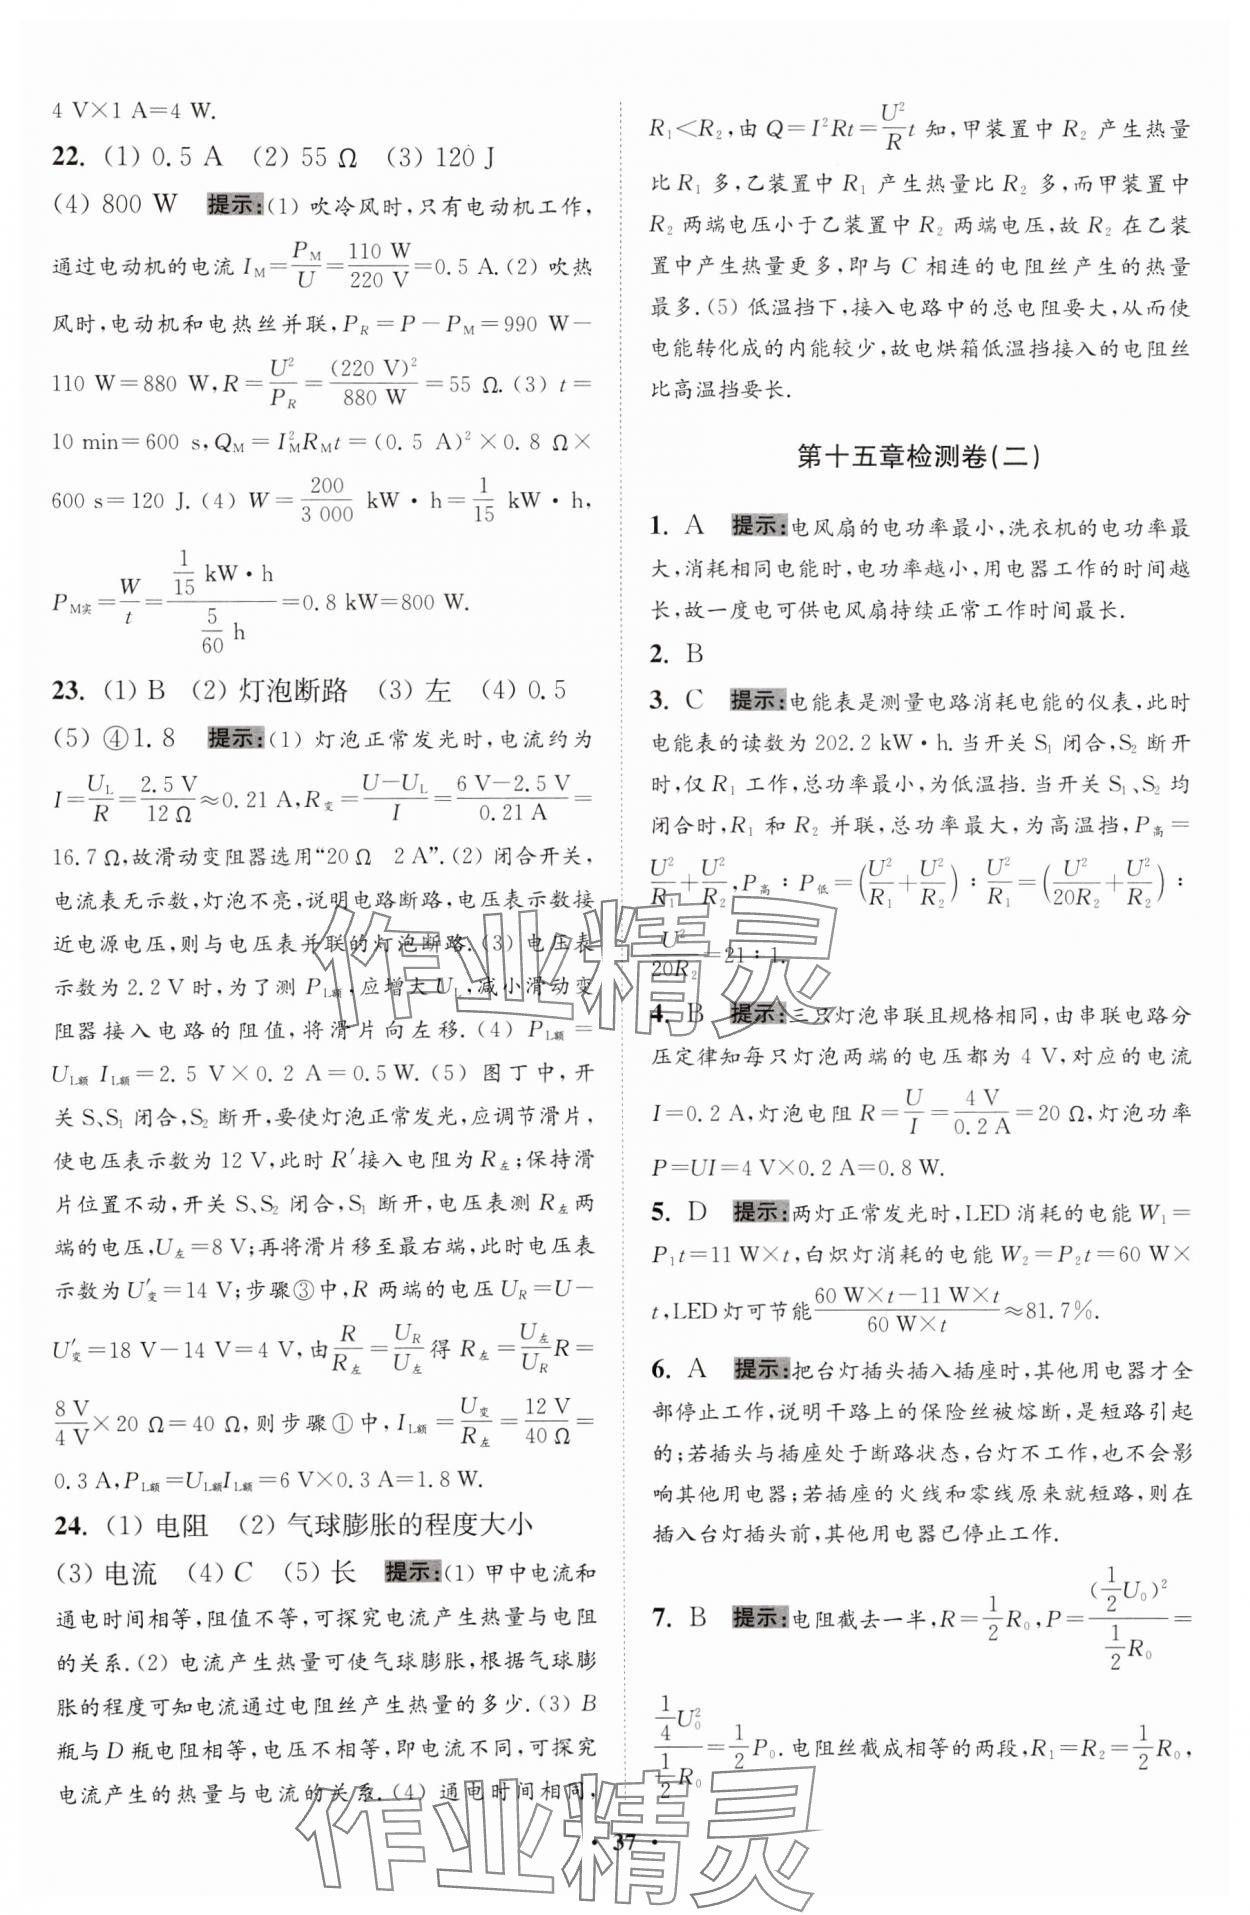 4 V×1 A=4 W.
22. (1) 0.5 A (2) 55 Ω (3) 120 J
(4) 800 W 提示:(1) 吹冷风时,只有电动机工作,
通过电动机的电流 I_M=P_M/U=110 W/220 V=0.5 A.(2) 吹热
风时,电动机和电热丝并联,P_R=P-P_M=990 W-
110 W=880 W,R=U²/P_R=(220 V)²/880 W=55 Ω.(3) t=
10 min=600 s,Q_M=I_M²R_Mt=(0.5 A)²×0.8 Ω×
600 s=120 J.(4) W=200/3 000 kW·h=1/15 kW·h,
P_M实=W/t=(1/15 kW·h)/(5/60 h)=0.8 kW=800 W.
23. (1) B (2) 灯泡断路 (3) 左 (4) 0.5
(5) ④1.8 提示:(1) 灯泡正常发光时,电流约为
I=U_L/R=2.5 V/12 Ω≈0.21 A,R_变=(U-U_L)/I=(6 V-2.5 V)/0.21 A=
16.7 Ω,故滑动变阻器选用“20 Ω 2 A”.(2) 闭合开关,
电流表无示数,灯泡不亮,说明电路断路,电压表示数接
近电源电压,则与电压表并联的灯泡断路.(3) 电压表
示数为 2.2 V 时,为了测 P_L额,应增大 U_L,减小滑动变
阻器接入电路的阻值,将滑片向左移.(4) P_L额=
U_L额 I_L额=2.5 V×0.2 A=0.5 W.(5) 图丁中,开
关 S、S₁ 闭合,S₂ 断开,要使灯泡正常发光,应调节滑片,
使电压表示数为 12 V,此时 R′接入电阻为 R_左;保持滑
片位置不动,开关 S、S₂ 闭合,S₁ 断开,电压表测 R_左两
端的电压,U_左=8 V;再将滑片移至最右端,此时电压表
示数为 U′_变=14 V;步骤③中,R 两端的电压 U_R=U-
U′_变=18 V-14 V=4 V,由R/R_左=U_R/U_左得 R_左=U_左/U_R R=
8 V/4 V×20 Ω=40 Ω,则步骤①中,I_L额=U_变/R_左=12 V/40 Ω=
0.3 A,P_L额=U_L额I_L额=6 V×0.3 A=1.8 W.
24. (1) 电阻 (2) 气球膨胀的程度大小
(3) 电流 (4) C (5) 长 提示:(1) 甲中电流和
通电时间相等,阻值不等,可探究电流产生热量与电阻
的关系.(2) 电流产生热量可使气球膨胀,根据气球膨
胀的程度可知电流通过电阻丝产生热量的多少.(3) B
瓶与 D 瓶电阻相等,电压不相等,即电流不同,可探究
电流产生的热量与电流的关系.(4) 通电时间相同,
R₁<R₂,由 Q=I²Rt=U²/R t 知,甲装置中 R₂ 产生热量
比 R₁ 多,乙装置中 R₁ 产生热量比 R₂ 多,而甲装置中
R₂ 两端电压小于乙装置中 R₂ 两端电压,故 R₂ 在乙装
置中产生热量更多,即与 C 相连的电阻丝产生的热量
最多.(5) 低温挡下,接入电路中的总电阻要大,从而使
电能转化成的内能较少,故电烘箱低温挡接入的电阻丝
比高温挡要长.
第十五章检测卷(二)
1. A 提示:电风扇的电功率最小,洗衣机的电功率最
大,消耗相同电能时,电功率越小,用电器工作的时间越
长,故一度电可供电风扇持续正常工作时间最长.
2. B
3. C 提示:电能表是测量电路消耗电能的仪表,此时
电能表的读数为 202.2 kW·h.当开关 S₁ 闭合,S₂ 断开
时,仅 R₁ 工作,总功率最小,为低温挡.当开关 S₁、S₂ 均
闭合时,R₁ 和 R₂ 并联,总功率最大,为高温挡,P_高=
U²/R₁+U²/R₂,P_高∶P_低=(U²/R₁+U²/R₂)∶U²/R₁=(U²/20R₂+U²/R₂)∶
U²/20R₂=21∶1.
4. B 提示:三只灯泡串联且规格相同,由串联电路分
压定律知每只灯泡两端的电压都为 4 V,对应的电流
I=0.2 A,灯泡电阻 R=U/I=4 V/0.2 A=20 Ω,灯泡功率
P=UI=4 V×0.2 A=0.8 W.
5. D 提示:两灯正常发光时,LED 消耗的电能 W₁=
P₁t=11 W×t,白炽灯消耗的电能 W₂=P₂t=60 W×
t,LED 灯可节能(60 W×t-11 W×t)/(60 W×t)≈81.7%.
6. A 提示:把台灯插头插入插座时,其他用电器才全
部停止工作,说明干路上的保险丝被熔断,是短路引起
的;若插头与插座处于断路状态,台灯不工作,也不会影
响其他用电器;若插座的火线和零线原来就短路,则在
插入台灯插头前,其他用电器已停止工作.
7. B 提示:电阻截去一半,R=1/2 R₀,P=(1/2 U₀)²/(1/2 R₀)=
(1/4 U₀²)/(1/2 R₀)=1/2 P₀.电阻丝截成相等的两段,R₁=R₂=1/2 R₀,
· 37 ·
作业精灵
作业精灵